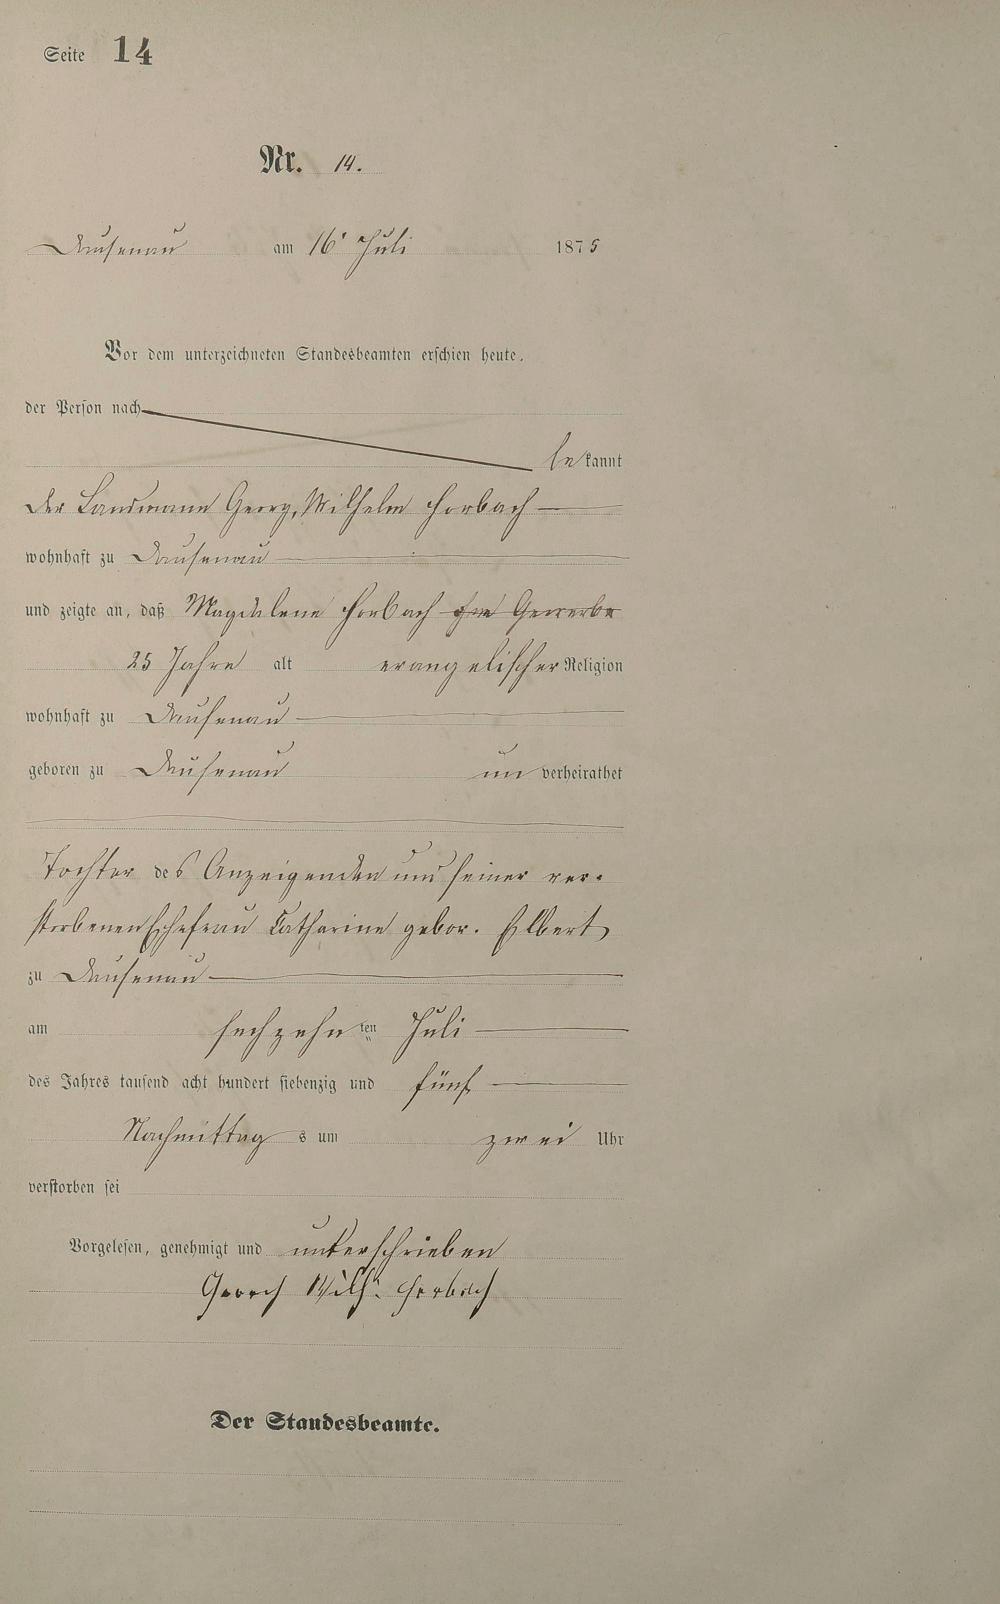 Seite 14
Nr. 14.
Dausenau am 16' Juli 1875
Vor dem unterzeichneten Standesbeamten erschien heute,
der Person nach
bekannt
der Landmann Georg, Wilhelm Horbach
wohnhaft zu Dausenau
und zeigte an, daß Magdalena Horbach ohne Gewerbe
25 Jahre alt evangelischer Religion
wohnhaft zu Dausenau
geboren zu Dausenau un verheirathet
Tochter des Anzeigenden und seiner ver-
storbenen Ehefrau Catharine gebor. Elbert
zu Dausenau
am sechzehnten Juli
des Jahres tausend acht hundert siebenzig und fünf
Nachmittag s um zwei Uhr
verstorben sei
Vorgelesen, genehmigt und unterschrieben
Georch Wilh. Horbach
Der Standesbeamte.